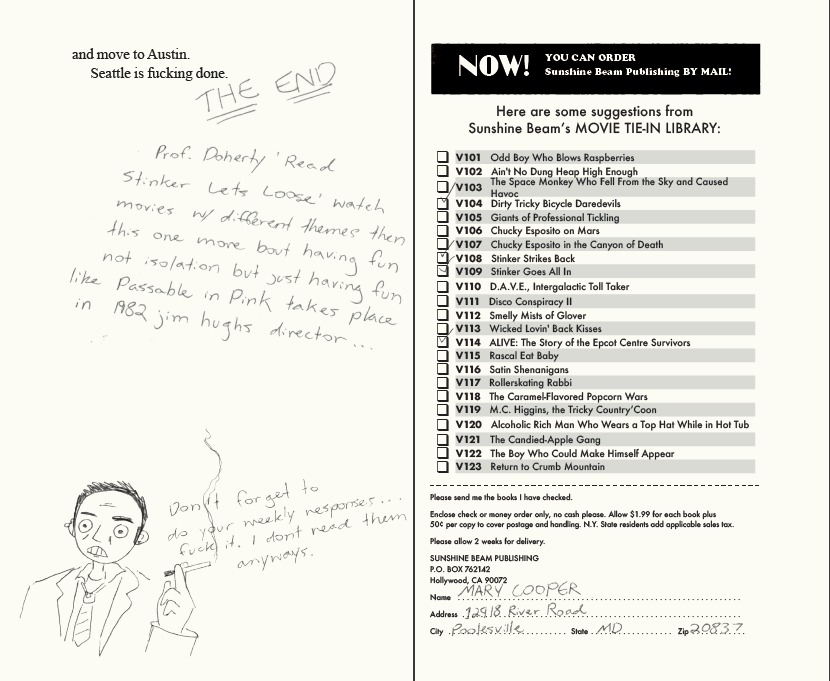 and move to Austin.
Seattle is fucking done.
THE END
Prof. Doherty 'Read
Stinker Lets Loose' watch
movies w/ different themes then
this one more bout having fun
not isolation but just having fun
like Passable in Pink takes place
in 1982 jim hughs director...
Don't forget to
do your weekly responses...
fuck it. I dont read them
anyways.
NOW!
YOU CAN ORDER
Sunshine Beam Publishing BY MAIL!
Here are some suggestions from
Sunshine Beam's MOVIE TIE-IN LIBRARY:
V101 Odd Boy Who Blows Raspberries
V102 Ain't No Dung Heap High Enough
V103 The Space Monkey Who Fell From the Sky and Caused
Havoc
V104 Dirty Tricky Bicycle Daredevils
V105 Giants of Professional Tickling
V106 Chucky Esposito on Mars
V107 Chucky Esposito in the Canyon of Death
V108 Stinker Strikes Back
V109 Stinker Goes All In
V110 D.A.V.E., Intergalactic Toll Taker
V111 Disco Conspiracy II
V112 Smelly Mists of Glover
V113 Wicked Lovin' Back Kisses
V114 ALIVE: The Story of the Epcot Centre Survivors
V115 Rascal Eat Baby
V116 Satin Shenanigans
V117 Rollerskating Rabbi
V118 The Caramel-Flavored Popcorn Wars
V119 M.C. Higgins, the Tricky Country'Coon
V120 Alcoholic Rich Man Who Wears a Top Hat While in Hot Tub
V121 The Candied-Apple Gang
V122 The Boy Who Could Make Himself Appear
V123 Return to Crumb Mountain
Please send me the books I have checked.
Enclose check or money order only, no cash please. Allow $1.99 for each book plus
50¢ per copy to cover postage and handling. N.Y. State residents add applicable sales tax.
Please allow 2 weeks for delivery.
SUNSHINE BEAM PUBLISHING
P.O. BOX 762142
Hollywood, CA 90072
Name MARY COOPER
Address 12918 River Road
City Poolesville State MD Zip 20837